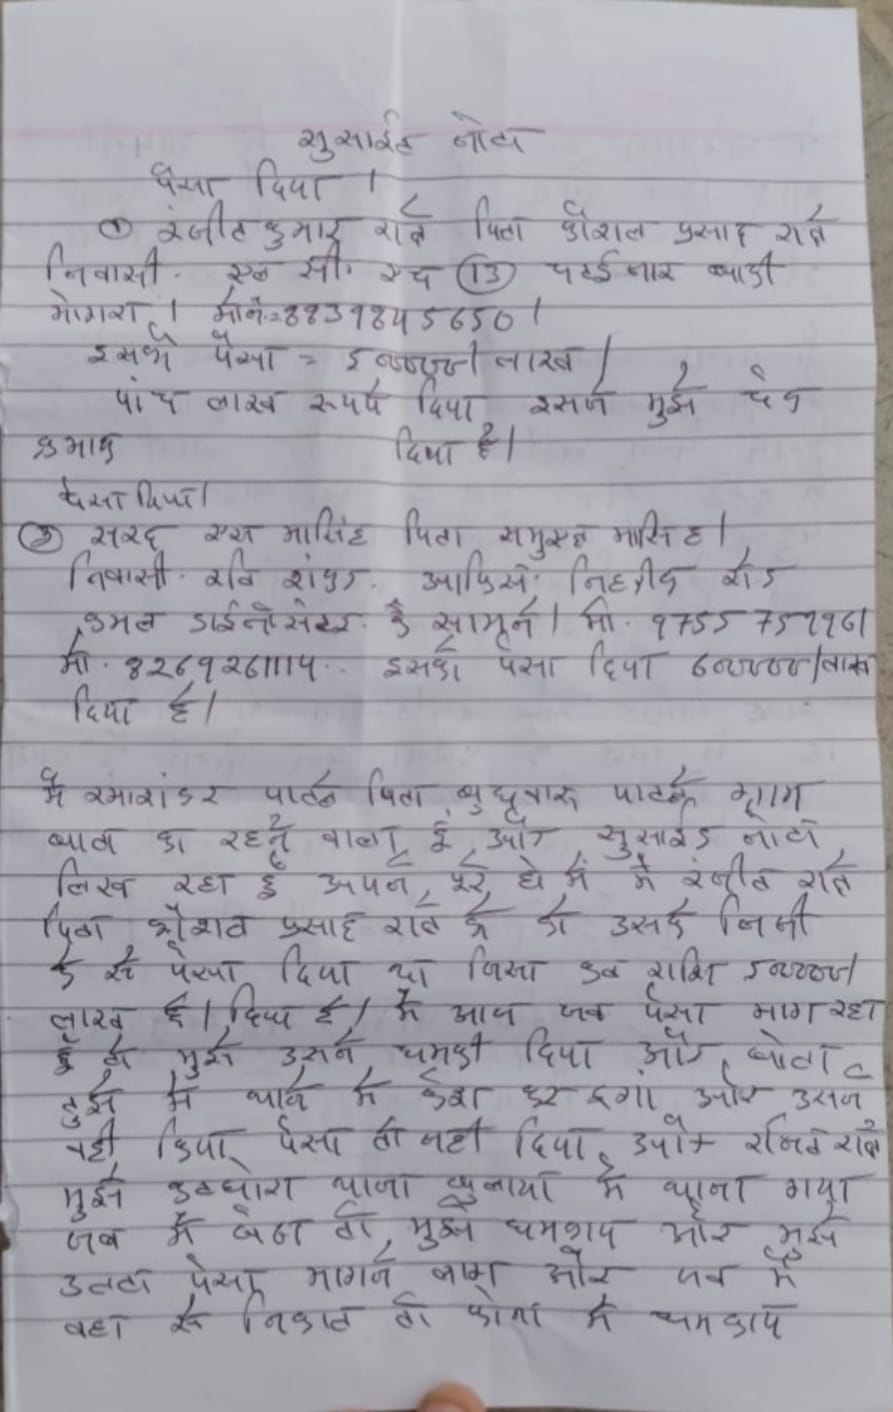 सुसाईड नोट
पैसा दिया ।
① रंजीत कुमार राते पिता कौशल प्रसाद राते
निवासी. एस सी. एच (13) चटईनार बाडी
मोगरा । मोनं.=88398456501
इसको पैसा = 500000/ लाख /
पांच लाख रूपये दिया इसने मुझे चेक
क्रमांक दिया है।
पैसा दिया।
सरद एस मासिंह पिता समुएल मासिंह।
निवासी. रवि शंकर. आफिसे. निहारीक रोड
कमल डाईनोसेटर के सामने । मो. 9755 759961
मो. 8269261114.. इसको पैसा दिया 600000/लाख
दिया है।
मै रमाशंकर पाटले पिता बुधवारू पाटले ग्राम
का रहने वाला हूं, और सुसाईड नोट
लिख रहा हूं अपने, पूरे होश में मै रंजीत राते
पिता कौशल प्रसाद राते के को उसके निजी
के से पैसा दिया था जिसा कुल राशि 500000/
लाख है। दिया है। मै आज जब पैसा मांग रहा
हूं तो मुझे उसने धमकी दिया और, बोला
तुझे मै थाने मे केश कर दूंगा और उसने
वही किया, पैसा तो नही दिया, और रंजित राते
मुझे कटघोरा थाना बुलाया मै थाना गया
जब मै बैठा तो, मुझे धमकाए और मुझे
उलटा पैसा मागने लागा और जब मै
वहा से निकला तो फोना मे धमकाए